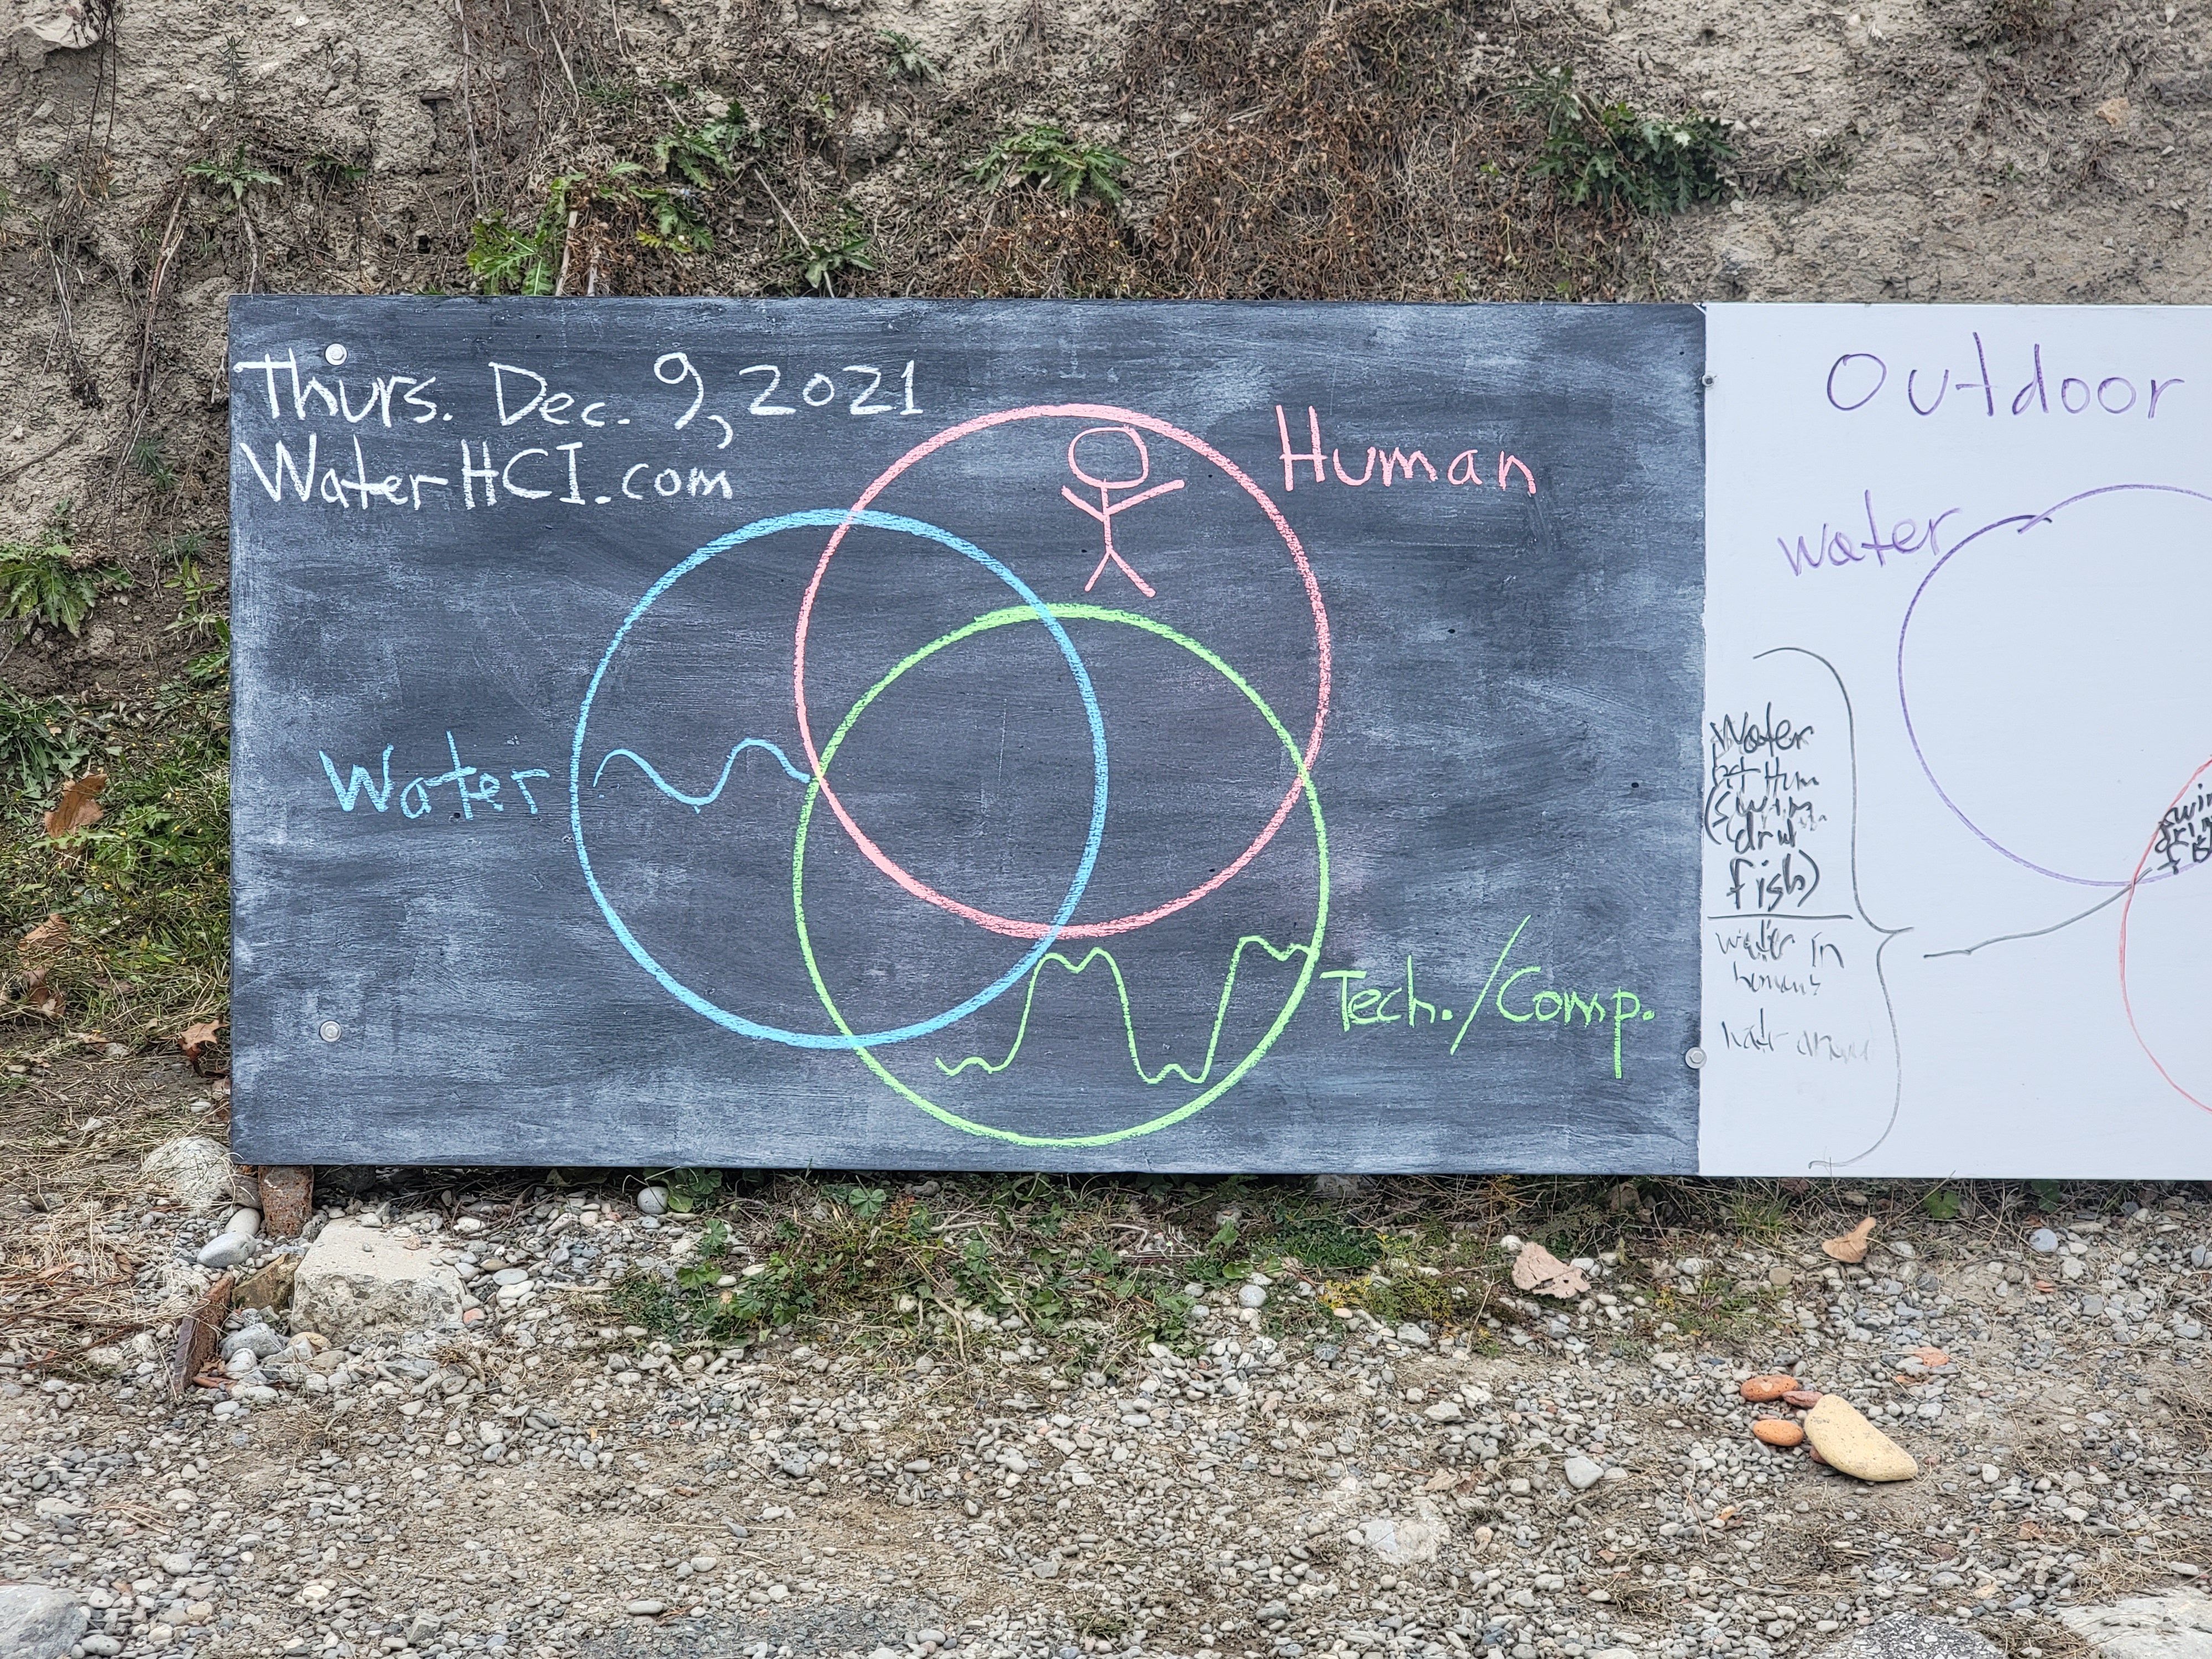 Thurs. Dec. 9, 2021
WaterHCI.com
Human
Water
Tech./Comp.
Outdoor
water
Water
(swim
fish)
water in